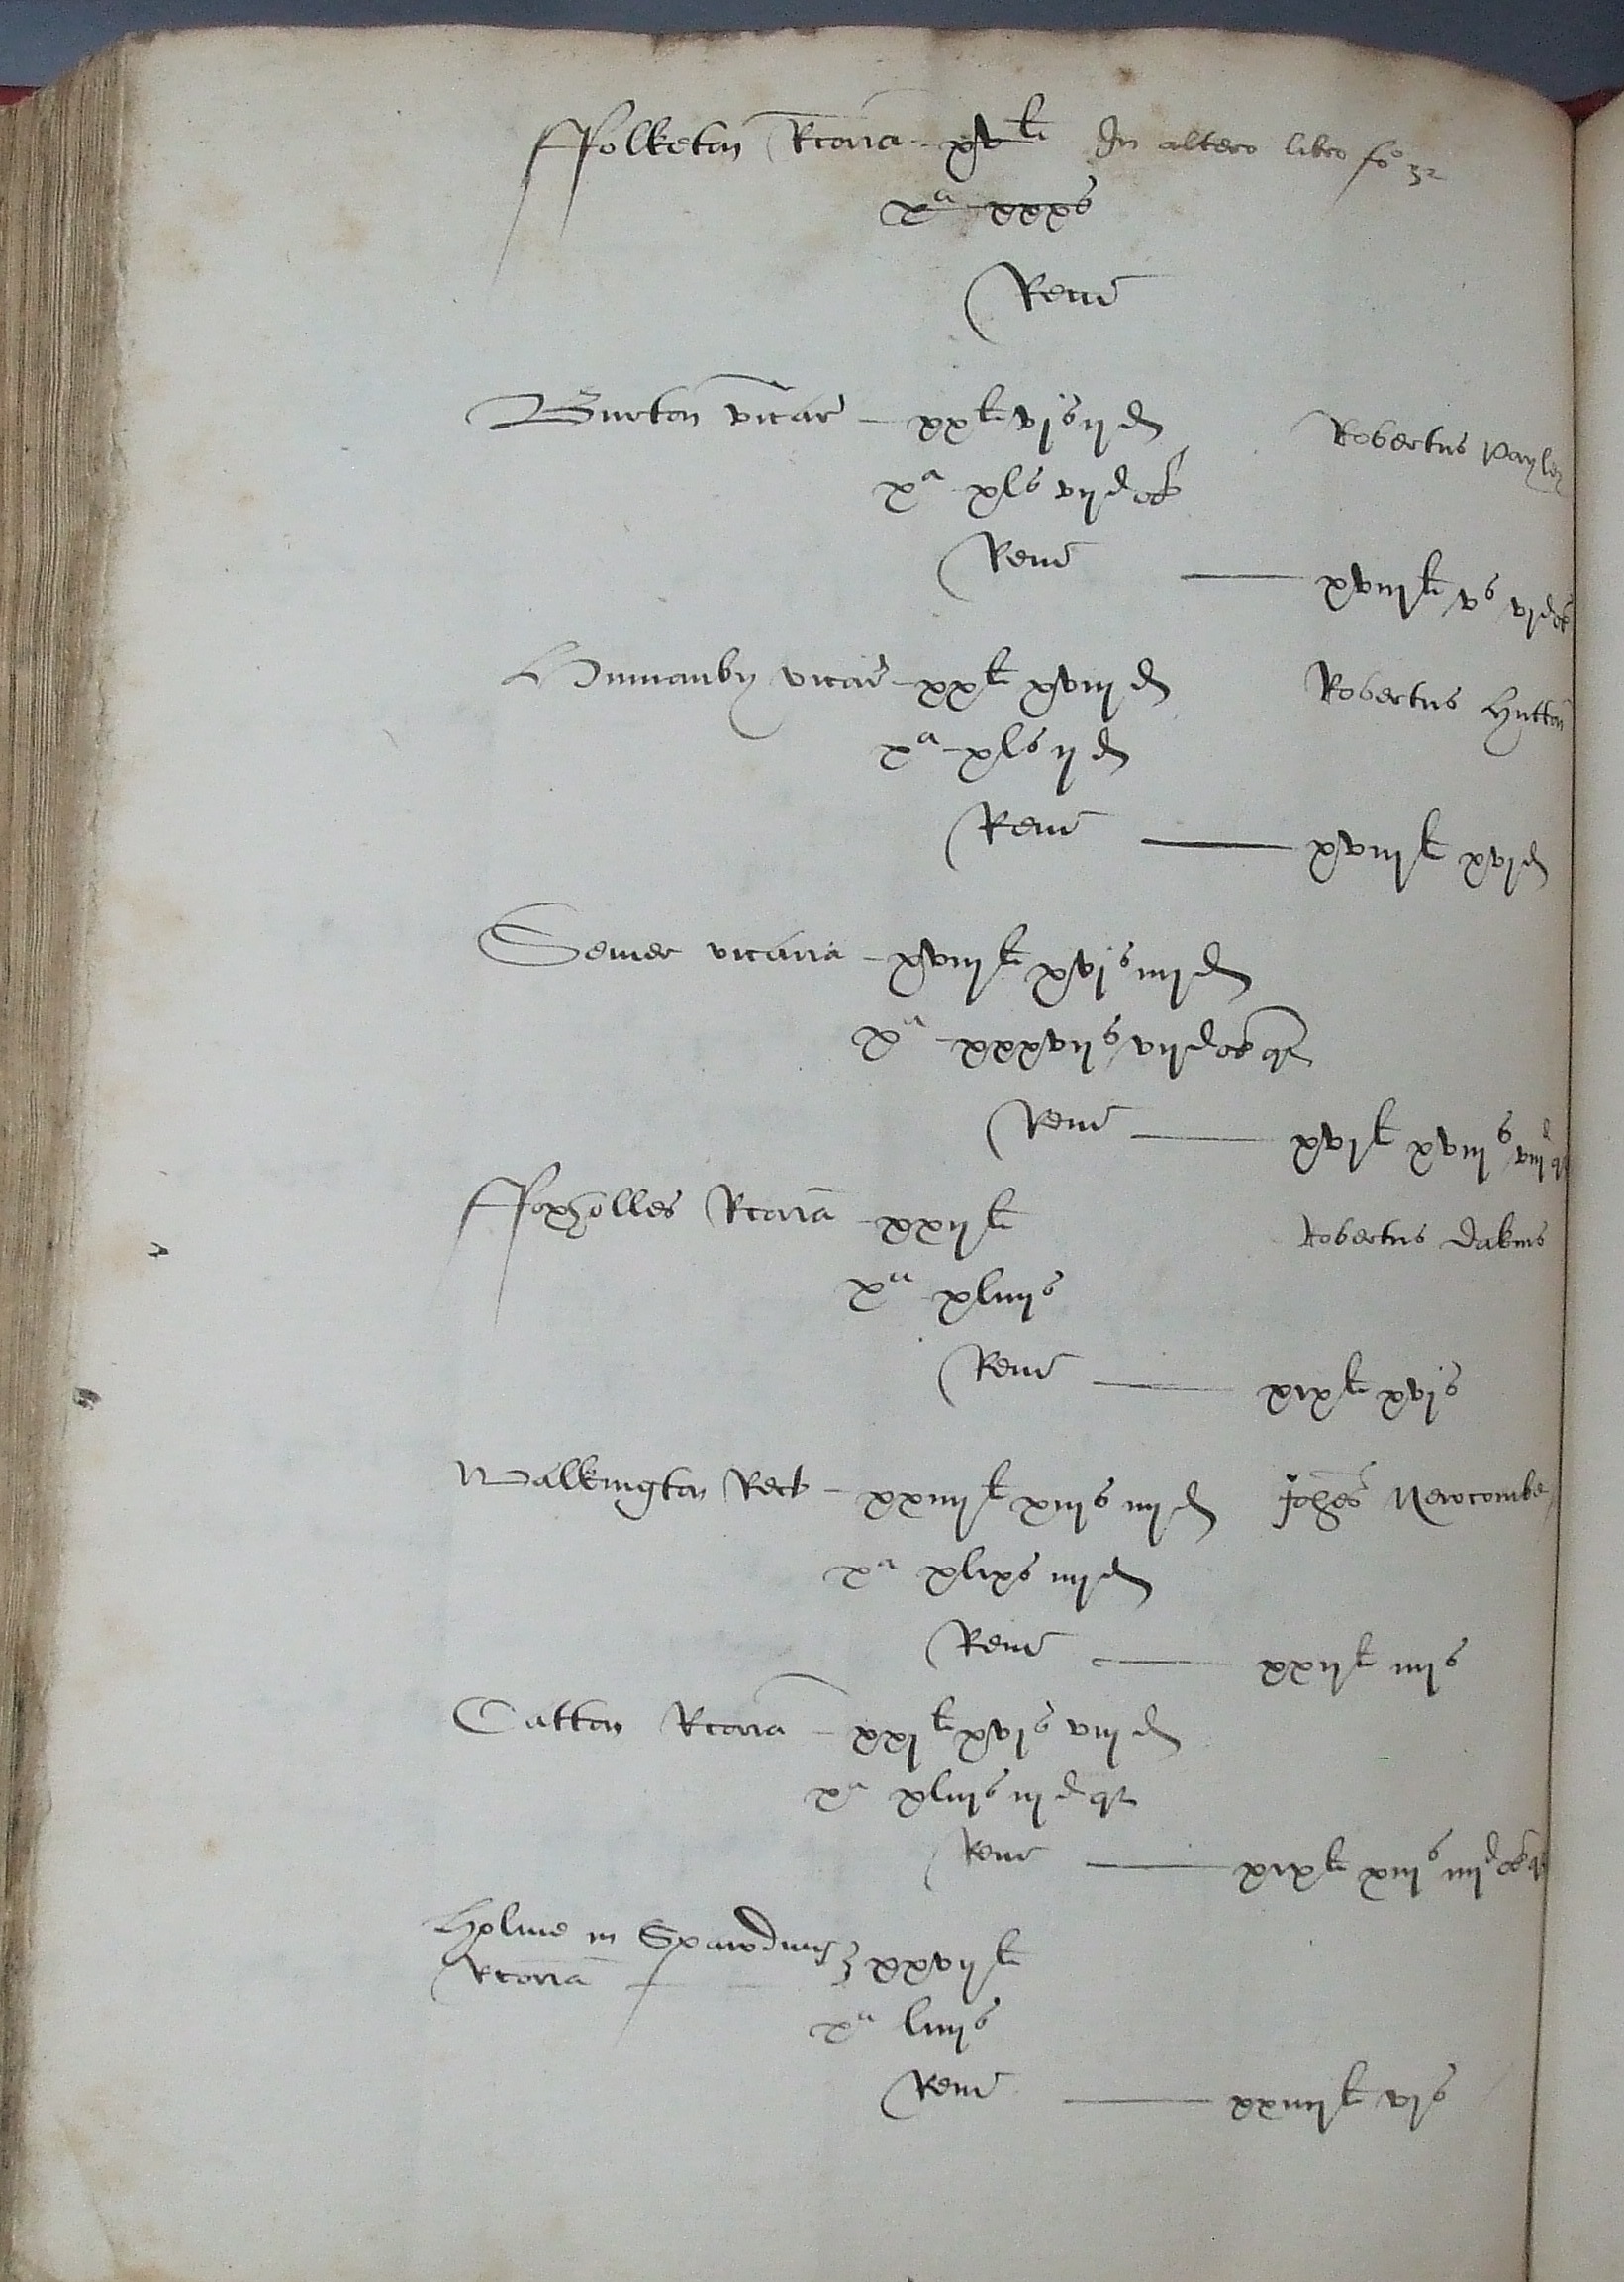 ffolketon Rcoria xv li In altero libro fo 32
xa xxxs
Rem
Burton vicar xxli vjs ijd Robertus Payle
xa xls vijd ob
Rem xviijli vs vjd ob
Hunmanby vicar xxli xviijd Robertus Hutton
xa xls ijd
Rem xviijli xvjd
Semer vicaria xviijli xvjs iiijd
xa xxxvijs vijd ob qr
Rem xvjli xviijs viijd qr
ffoxholles Rcoria xxijli Robertus Dakins
xa xliiijs
Rem xixli xvjs
Walkington Rect xxiiijli xiijs iiijd Johes Newcombe
xa xlixs iiijd
Rem xxijli iiijs
Catton Rcoria xxjli xvjs viijd
xa xliijs iijd qr
Rem xixli xiijs iiijd ob qr
Holme in Spawdings xxvijli
Rcoria
xa liiijs
Rem xxiiijli vjs